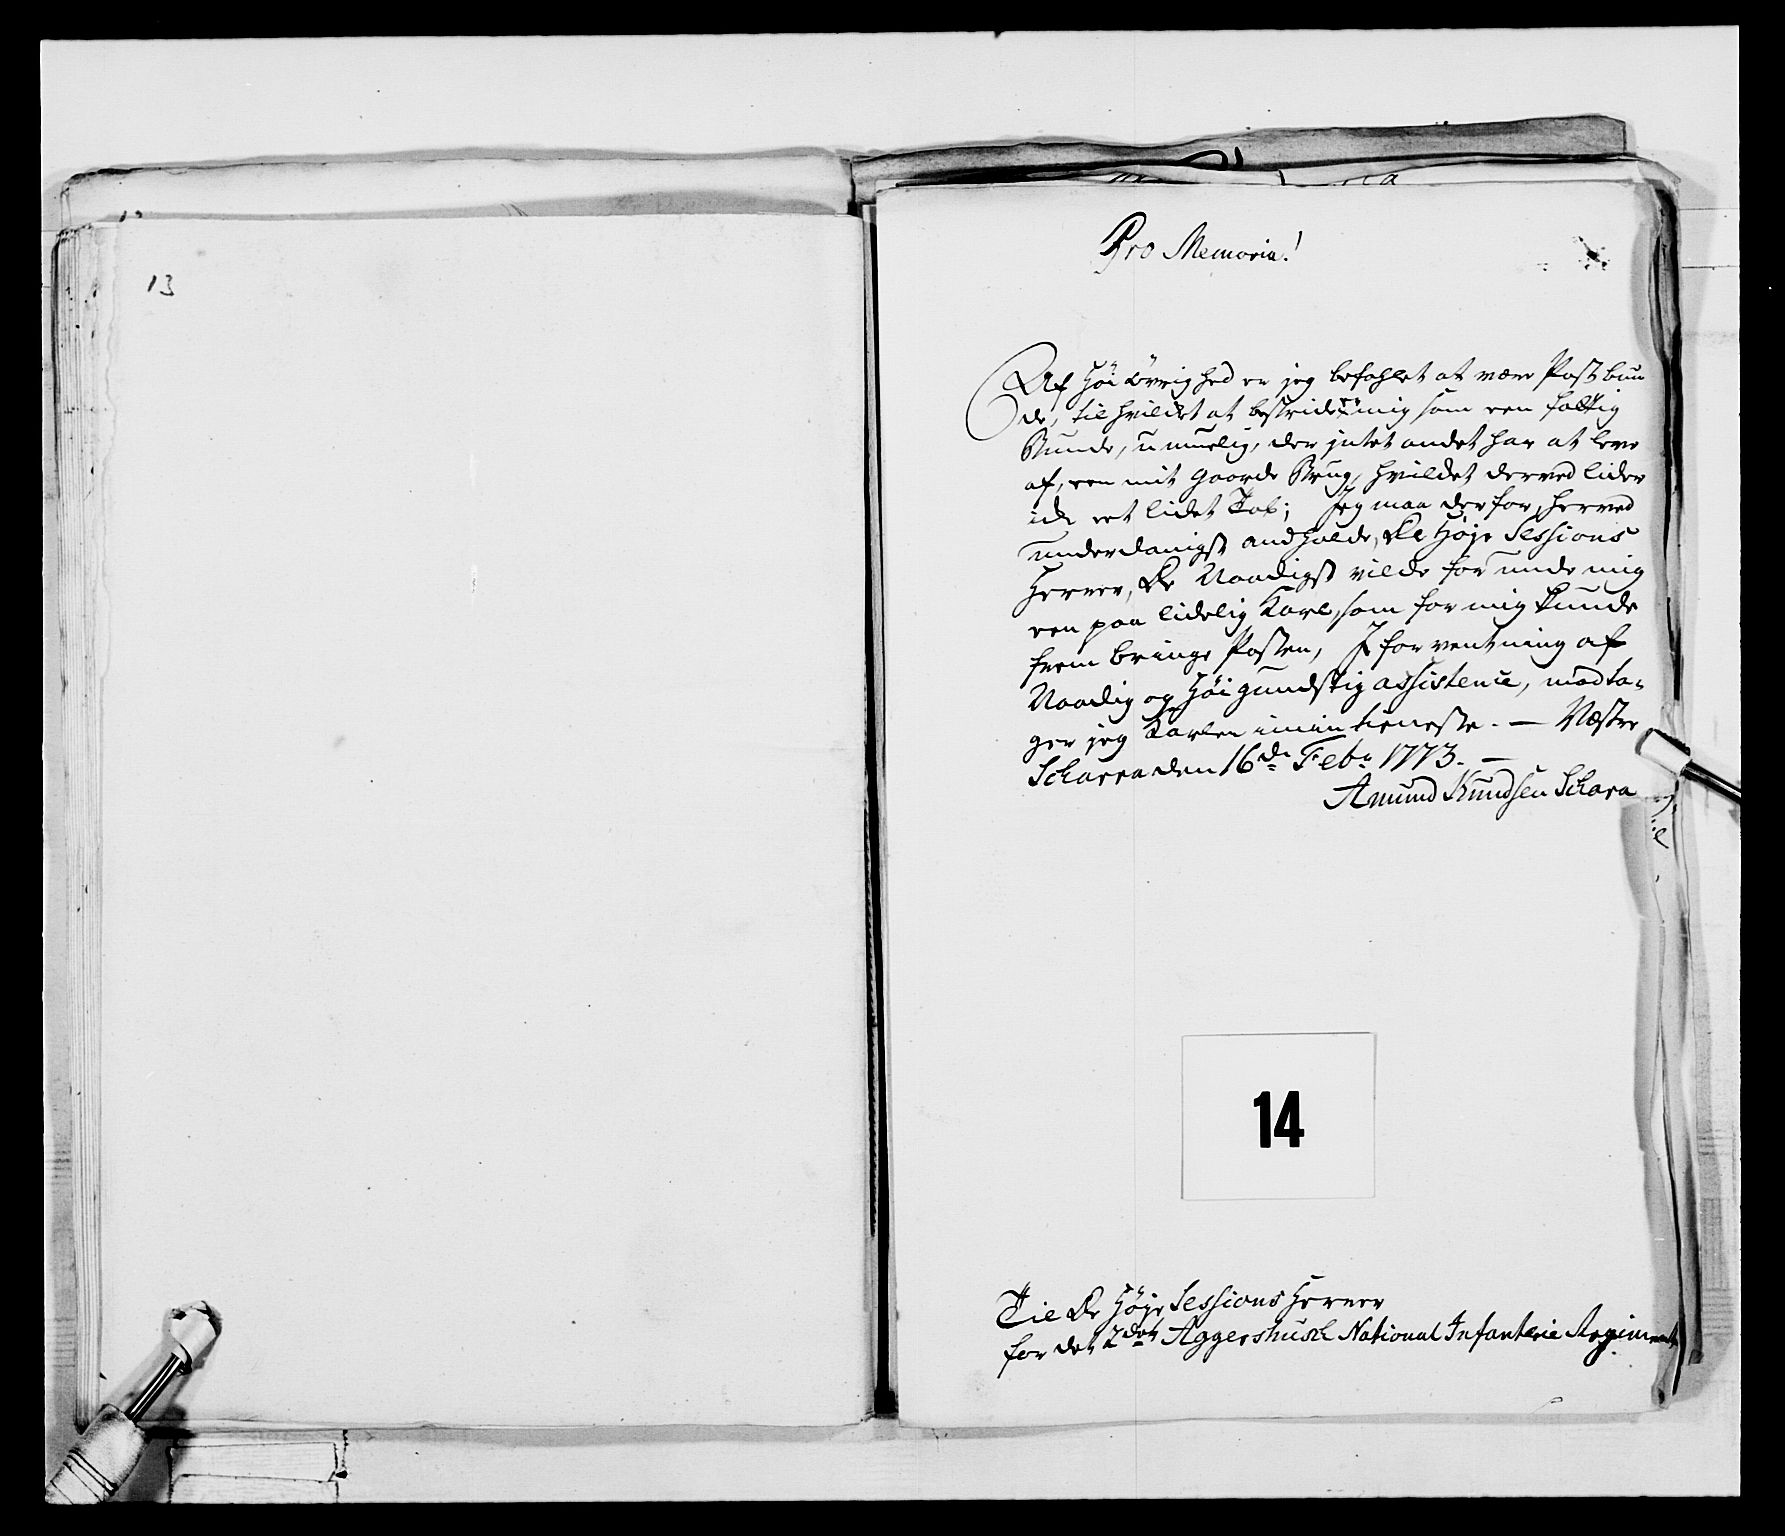 13
Pro Memoria!
Af Høi Øvrighed er jeg befahlet at være Postbun
de, til hvilket at bestride er mig som een fattig
Bunde, u muelig, der intet andet har at leve
af, een mit Gaards Brug, hvilcket derved lider
icke eet lidet Tab; Jeg maa derfor, herved
underdanigst andholde, De Høje Sessions
Herrer, De Naadigst vilde for unde mig
een paa lidelig Karl, som for mig kunde
frem bringe Posten, I forventning af
Naadig og Høi gundstig assistence, modta-
ger jeg Karlen i min tieneste. — Næstre
Scharra den 16de Feb: 1773. —
Amund Knudsen Schara
14
Til De Høje Sessions Herrer
for det 2det Aggershusch National Infanterie Regiment